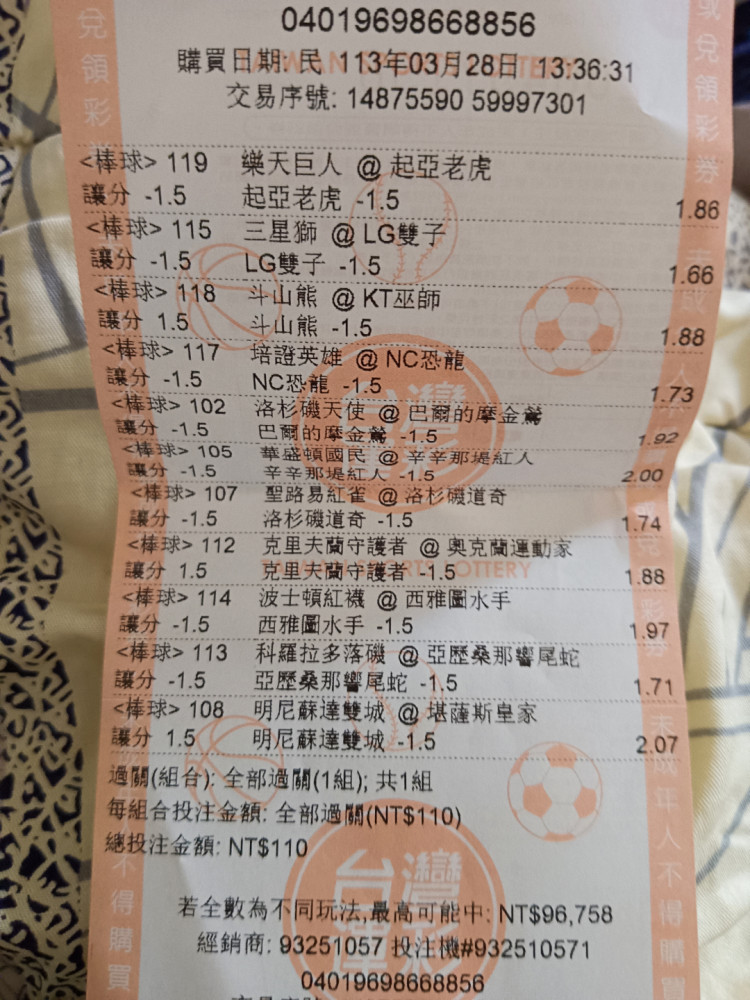 04019698668856
購買日期: 民 113年03月28日 13:36:31
交易序號: 14875590 59997301
<棒球> 119 樂天巨人 @ 起亞老虎
讓分 -1.5 起亞老虎 -1.5 1.86
<棒球> 115 三星獅 @ LG雙子
讓分 -1.5 LG雙子 -1.5 1.66
<棒球> 118 斗山熊 @ KT巫師
讓分 1.5 斗山熊 -1.5 1.88
<棒球> 117 培證英雄 @ NC恐龍
讓分 -1.5 NC恐龍 -1.5 1.73
<棒球> 102 洛杉磯天使 @ 巴爾的摩金鶯
讓分 -1.5 巴爾的摩金鶯 -1.5 1.92
<棒球> 105 華盛頓國民 @ 辛辛那堤紅人
讓分 -1.5 辛辛那堤紅人 -1.5 2.00
<棒球> 107 聖路易紅雀 @ 洛杉磯道奇
讓分 -1.5 洛杉磯道奇 -1.5 1.74
<棒球> 112 克里夫蘭守護者 @ 奧克蘭運動家
讓分 1.5 克里夫蘭守護者 -1.5 1.88
<棒球> 114 波士頓紅襪 @ 西雅圖水手
讓分 -1.5 西雅圖水手 -1.5 1.97
<棒球> 113 科羅拉多落磯 @ 亞歷桑那響尾蛇
讓分 -1.5 亞歷桑那響尾蛇 -1.5 1.71
<棒球> 108 明尼蘇達雙城 @ 堪薩斯皇家
讓分 1.5 明尼蘇達雙城 -1.5 2.07
過關(組合): 全部過關(1組); 共1組
每組合投注金額: 全部過關(NT$110)
總投注金額: NT$110
若全數為不同玩法,最高可能中: NT$96,758
經銷商: 93251057 投注機#932510571
04019698668856
兌領彩
不得購買
或兌領彩券
未成年人不得購買
台灣
運彩